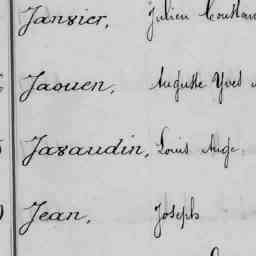 Janvier, Julien Constant
Jaouen, Auguste Yves
Jaraudin, Louis Ange
Jean, Joseph